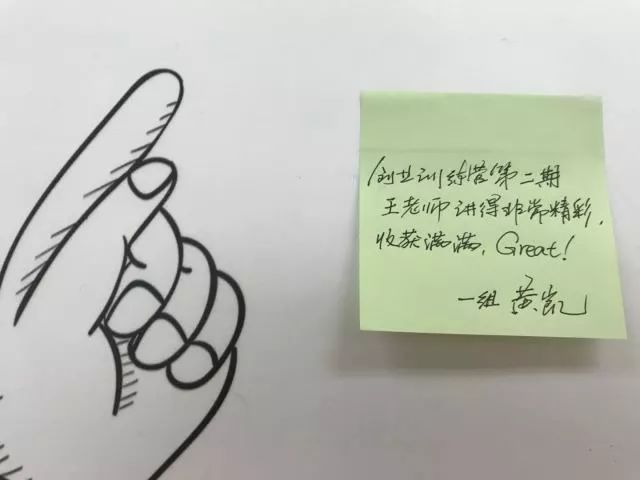 创业训练营第二期
王老师讲得非常精彩,
收获满满, Great!
一组 黄凯